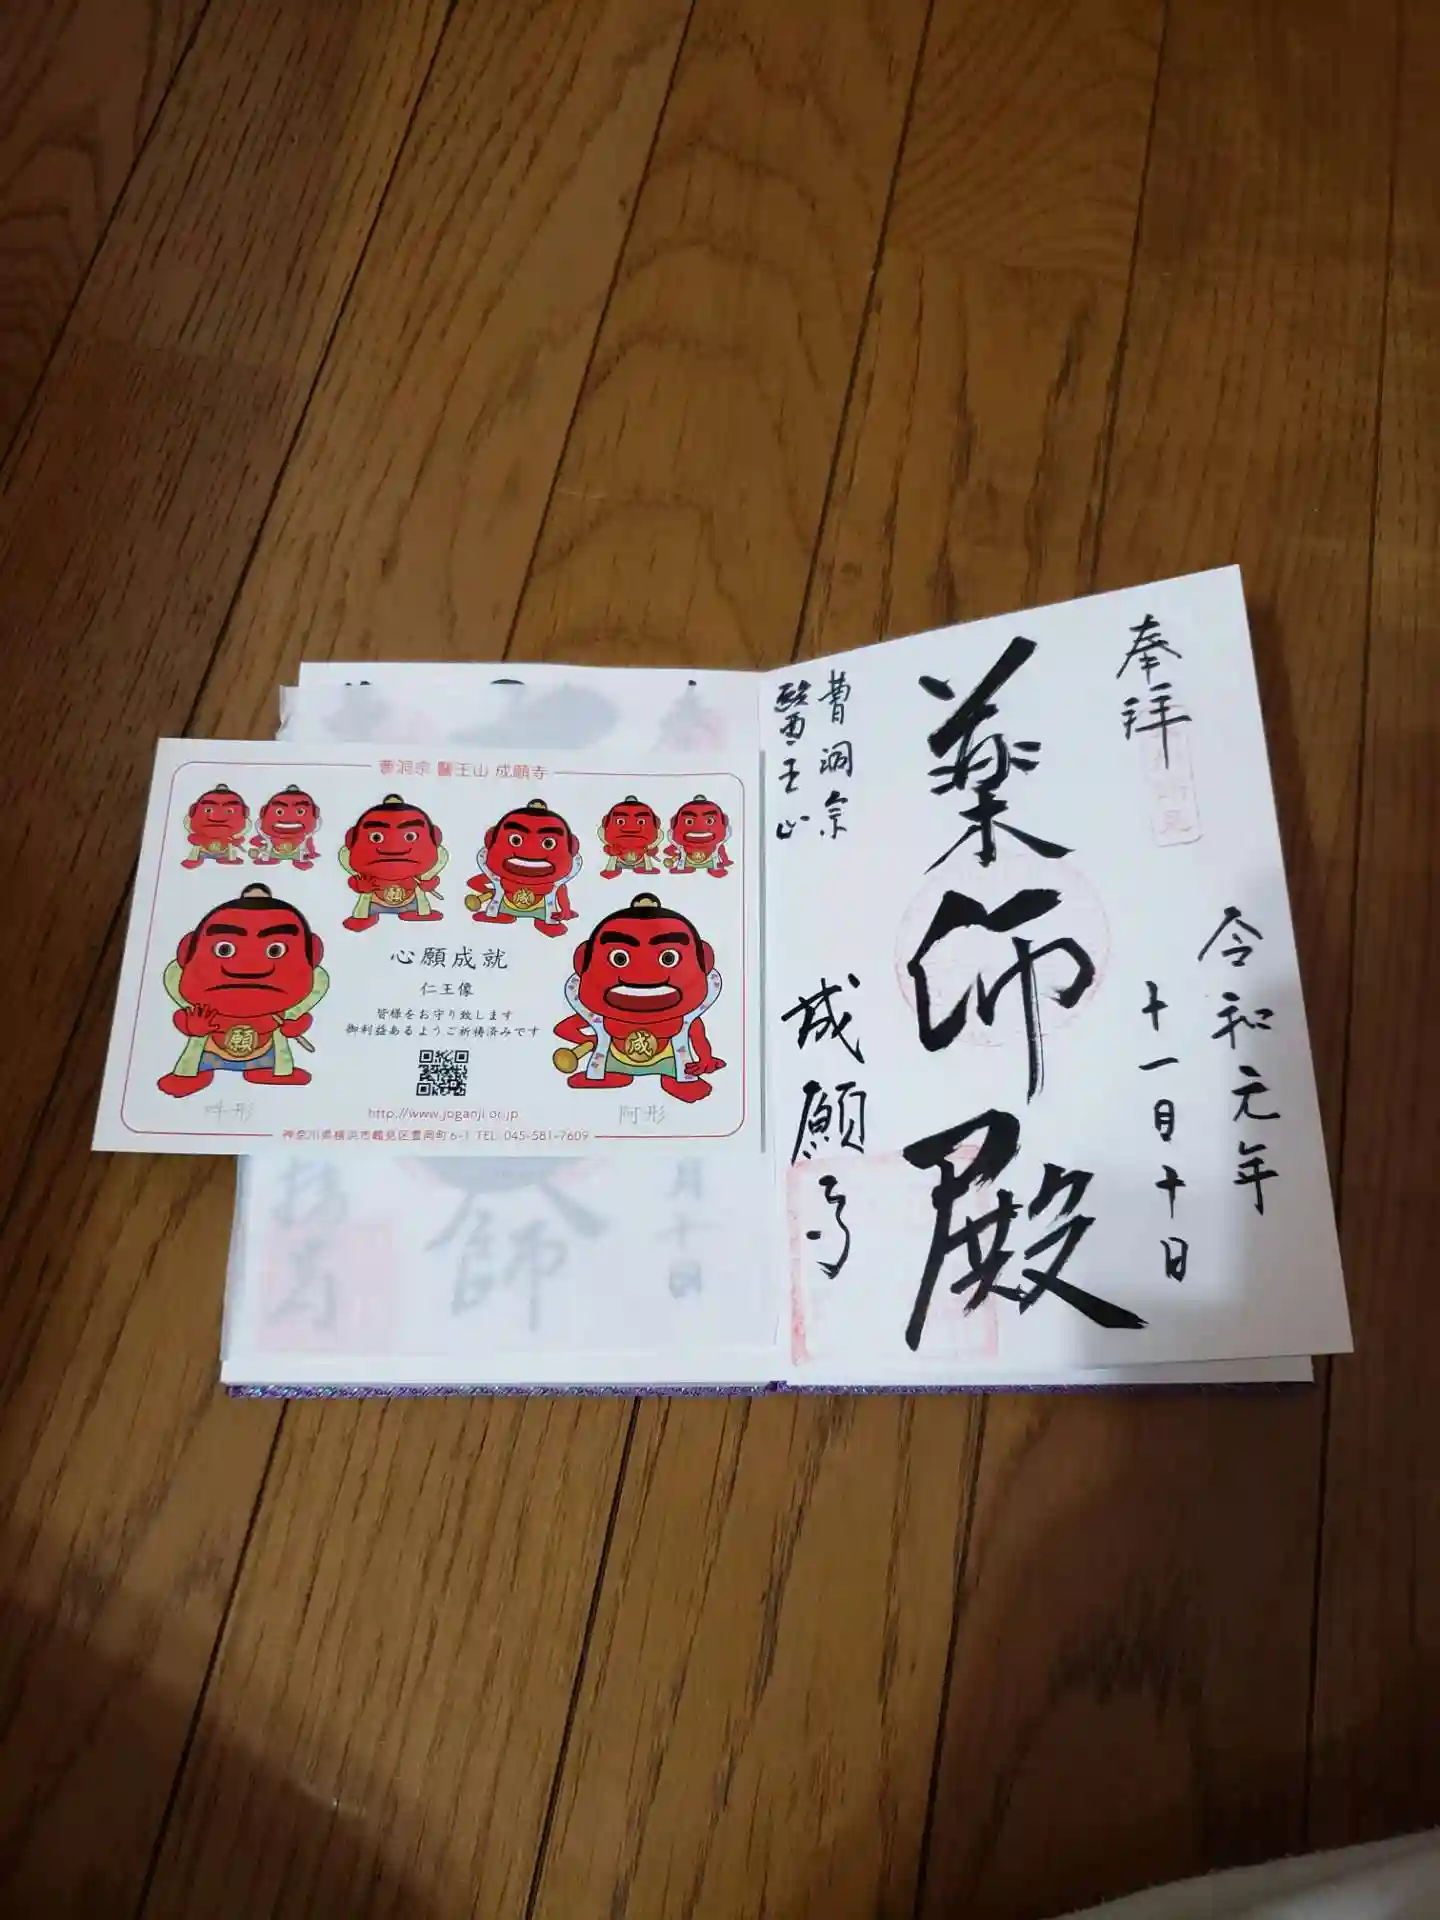 曹洞宗 醫王山 成願寺
願
成
願
成
心願成就
仁王像
皆様をお守り致します
御利益あるようご祈祷済みです
吽形
阿形
http://www.joganji.or.jp
神奈川県横浜市鶴見区豊岡町6-1 TEL: 045-581-7609
奉拝
令和元年
十一月十日
薬師殿
曹洞宗
醫王山
成願寺
師
月十日